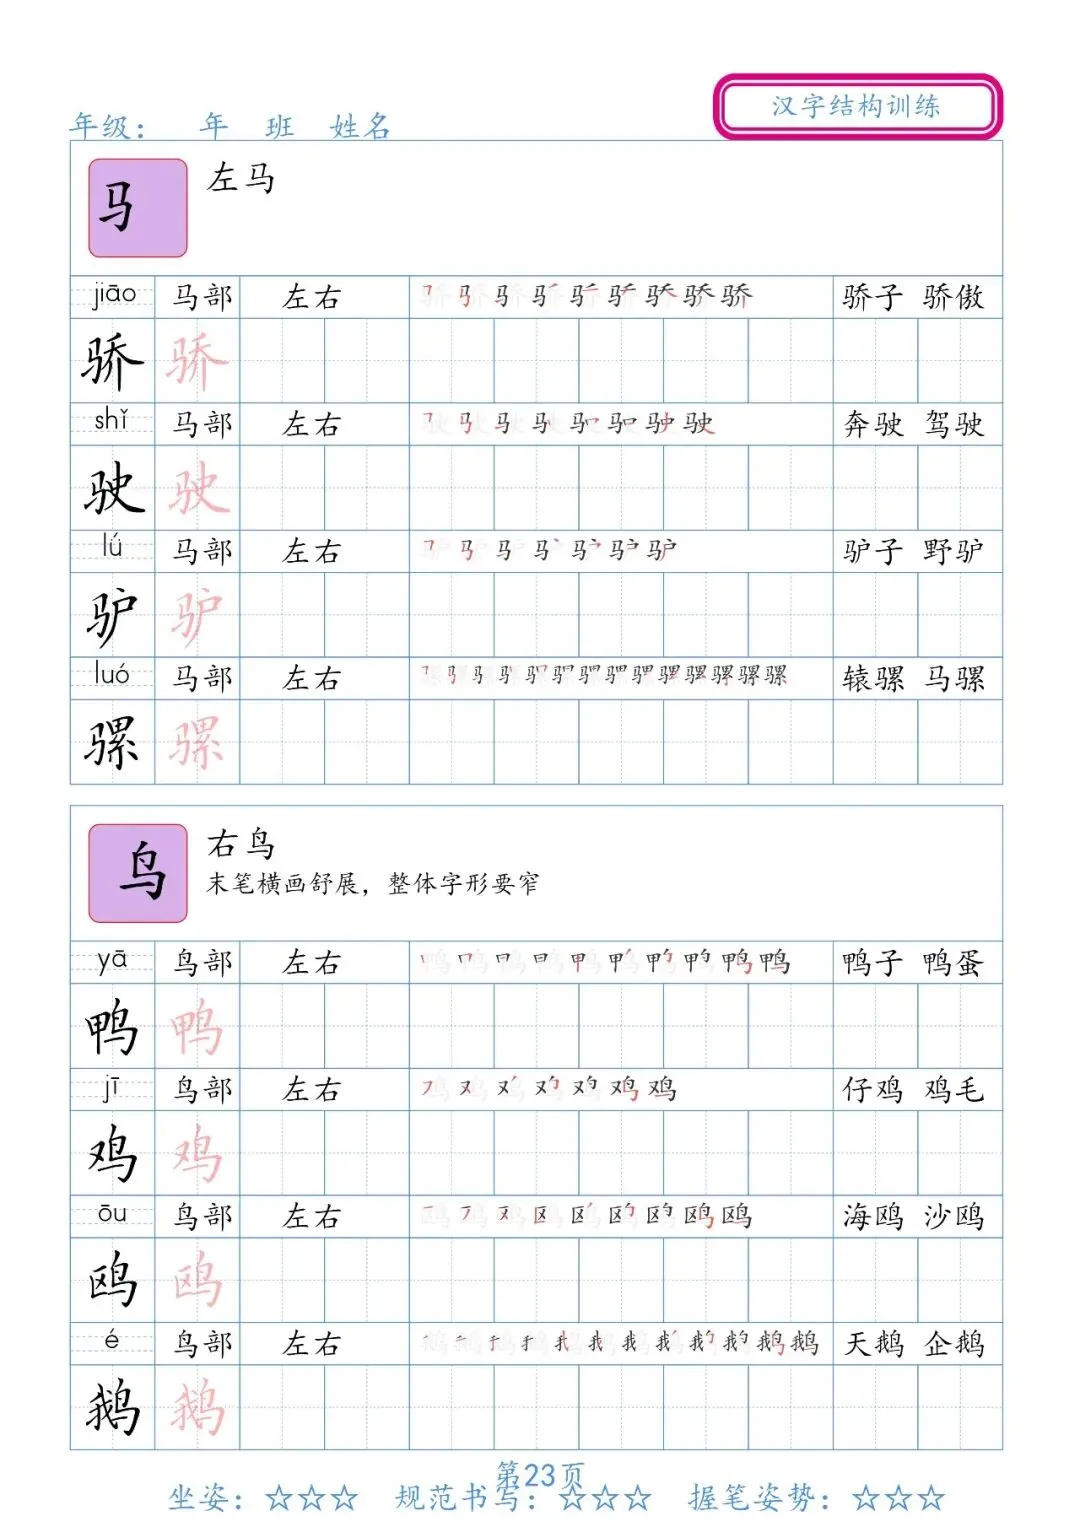 汉字结构训练
年级： 年 班 姓名
马 左马
jiāo 马部 左右 骄子 骄傲
骄 骄
shǐ 马部 左右 奔驶 驾驶
驶 驶
lǘ 马部 左右 驴子 野驴
驴 驴
luó 马部 左右 辕骡 马骡
骡 骡
鸟 右鸟
末笔横画舒展，整体字形要窄
yā 鸟部 左右 鸭子 鸭蛋
鸭 鸭
jī 鸟部 左右 仔鸡 鸡毛
鸡 鸡
ōu 鸟部 左右 海鸥 沙鸥
鸥 鸥
é 鸟部 左右 天鹅 企鹅
鹅 鹅
第23页
坐姿：☆☆☆ 规范书写：☆☆☆ 握笔姿势：☆☆☆